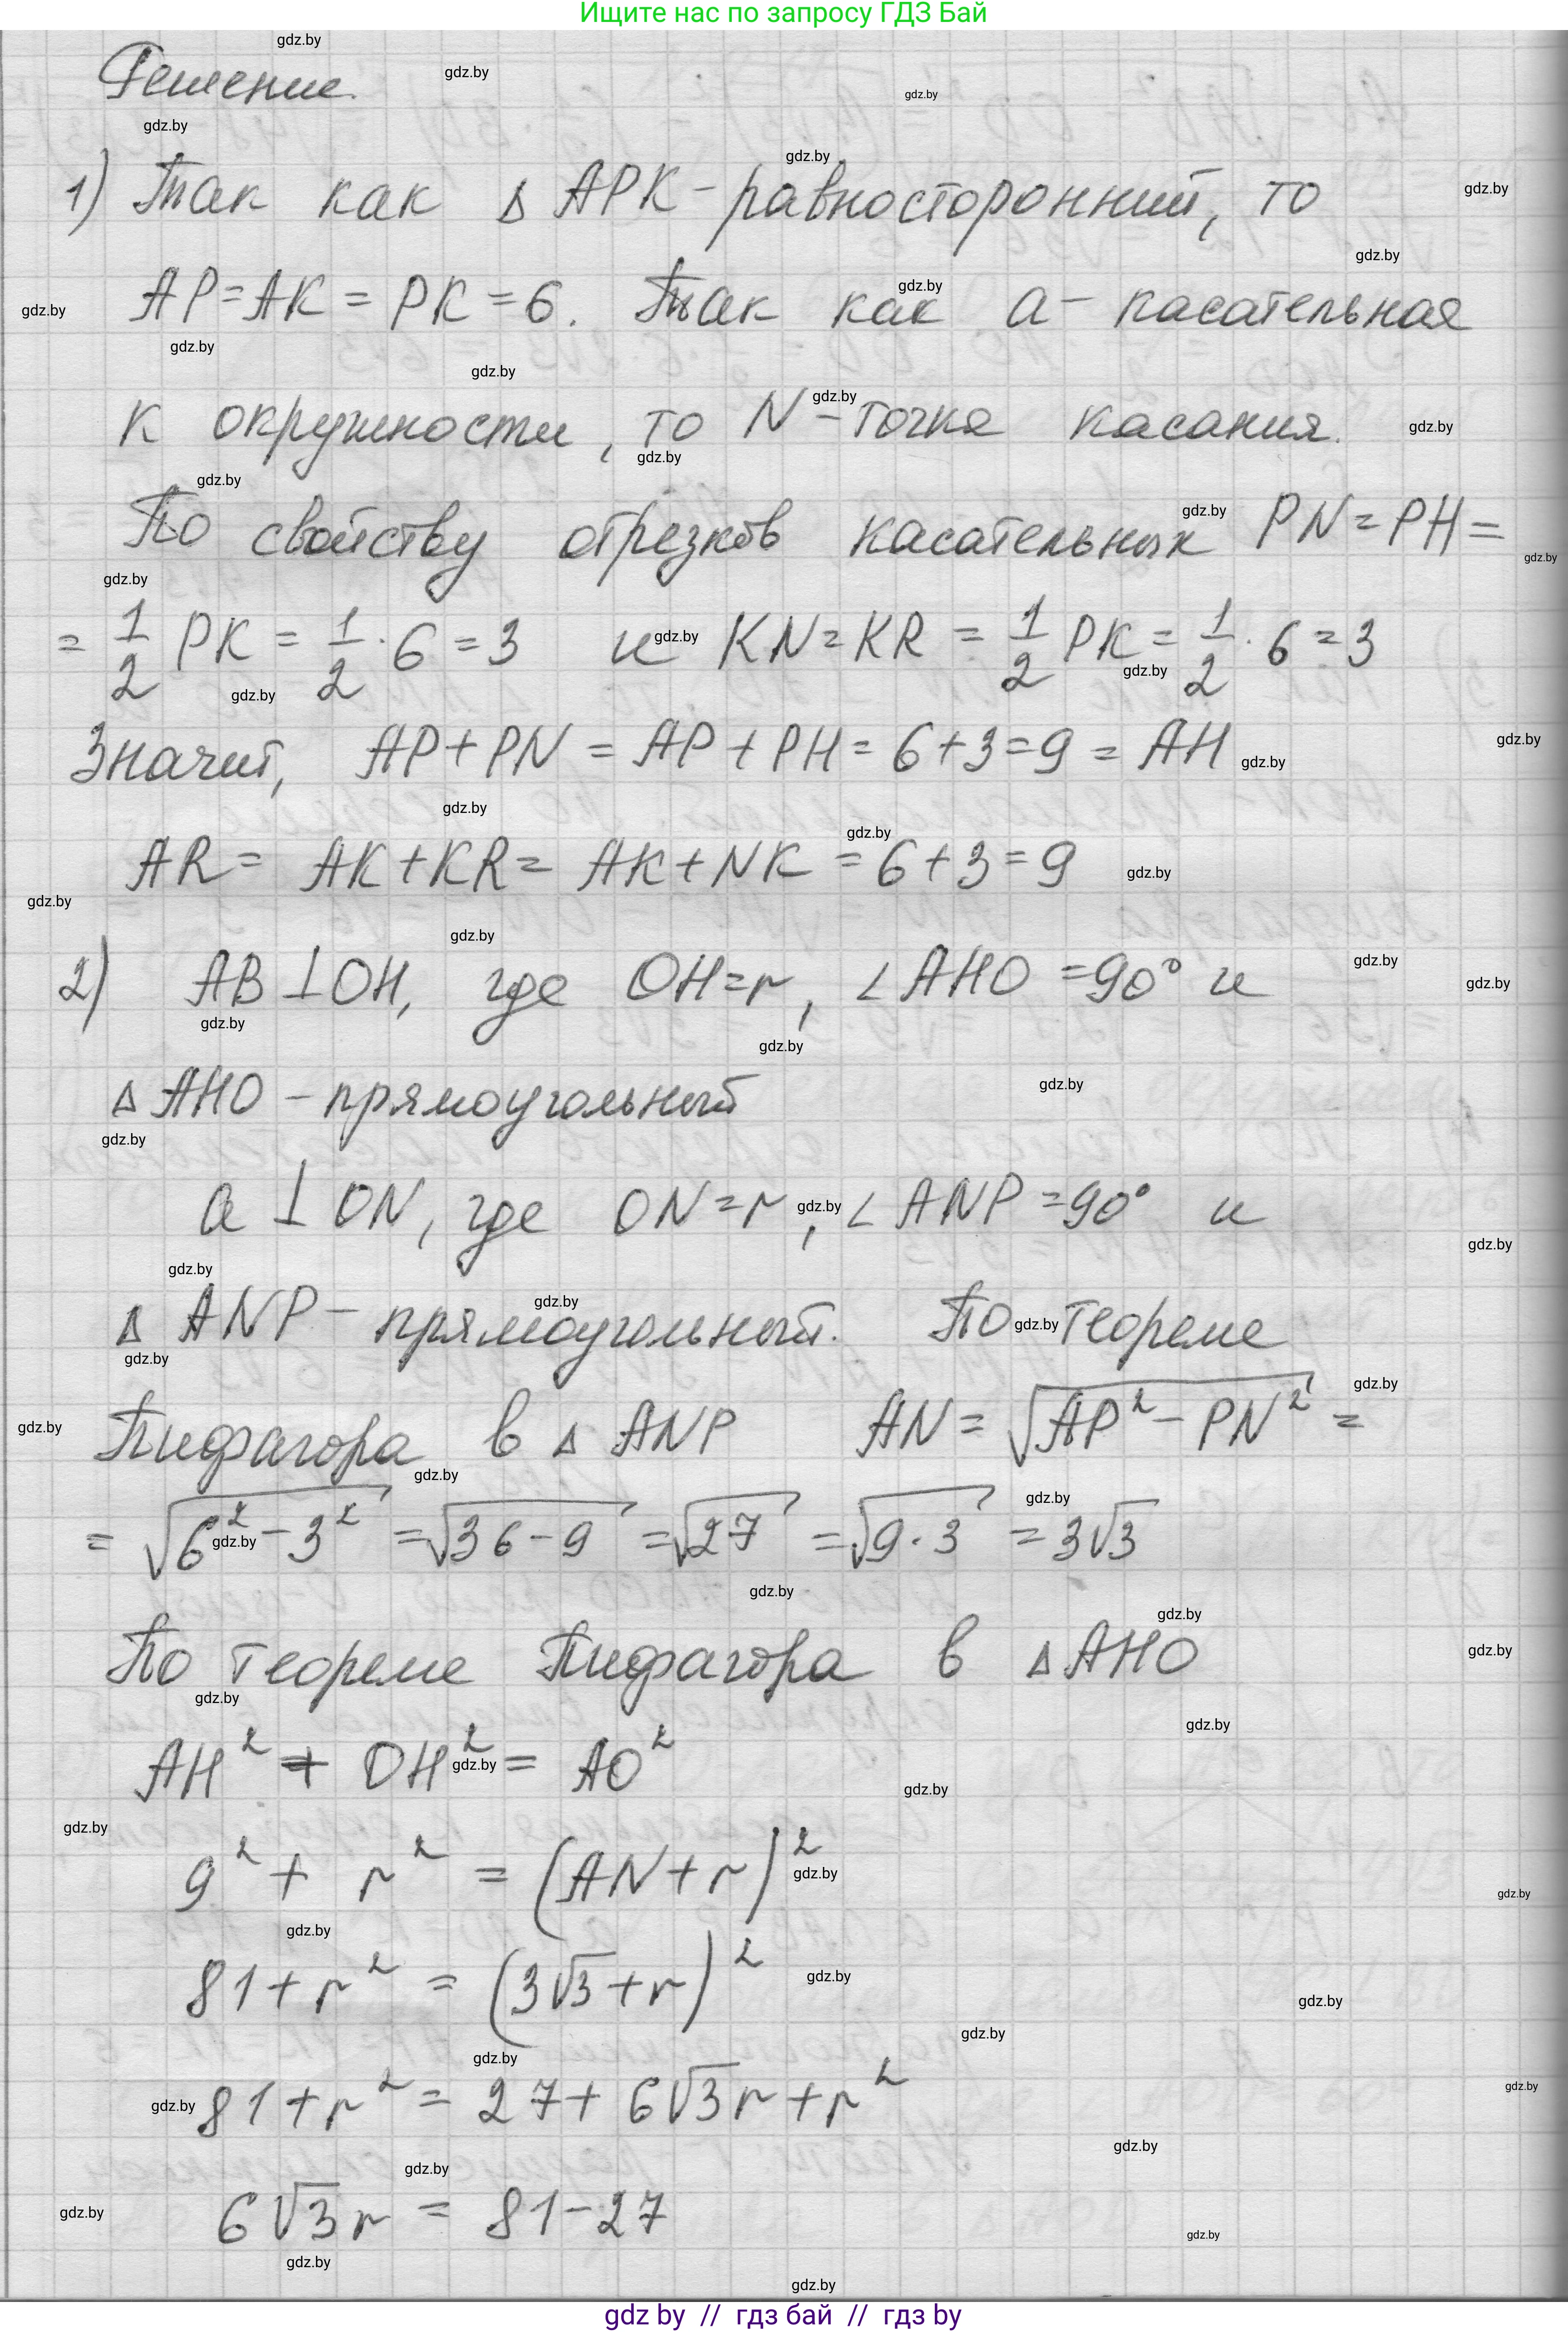 Ищите нас по запросу ГДЗ Бай
Решение.
1) Так как Δ APK - равносторонний, то
AP = AK = PK = 6. Так как a - касательная
к окружности, то N - точка касания.
По свойству отрезков касательных PN = PH =
= 1/2 PK = 1/2 · 6 = 3 и KN = KR = 1/2 PK = 1/2 · 6 = 3
Значит, AP + PN = AP + PH = 6 + 3 = 9 = AH
AR = AK + KR = AK + NK = 6 + 3 = 9
2) AB ⊥ OH, где OH = r, ∠ AHO = 90° и
Δ AHO - прямоугольный
a ⊥ ON, где ON = r, ∠ ANP = 90° и
Δ ANP - прямоугольный. По теореме
Пифагора в Δ ANP AN = √(AP² - PN²) =
= √(6² - 3²) = √(36 - 9) = √27 = √(9 · 3) = 3√3
По теореме Пифагора в Δ AHO
AH² + OH² = AO²
9² + r² = (AN + r)²
81 + r² = (3√3 + r)²
81 + r² = 27 + 6√3 r + r²
6√3 r = 81 - 27
gdz by // гдз бай // гдз by